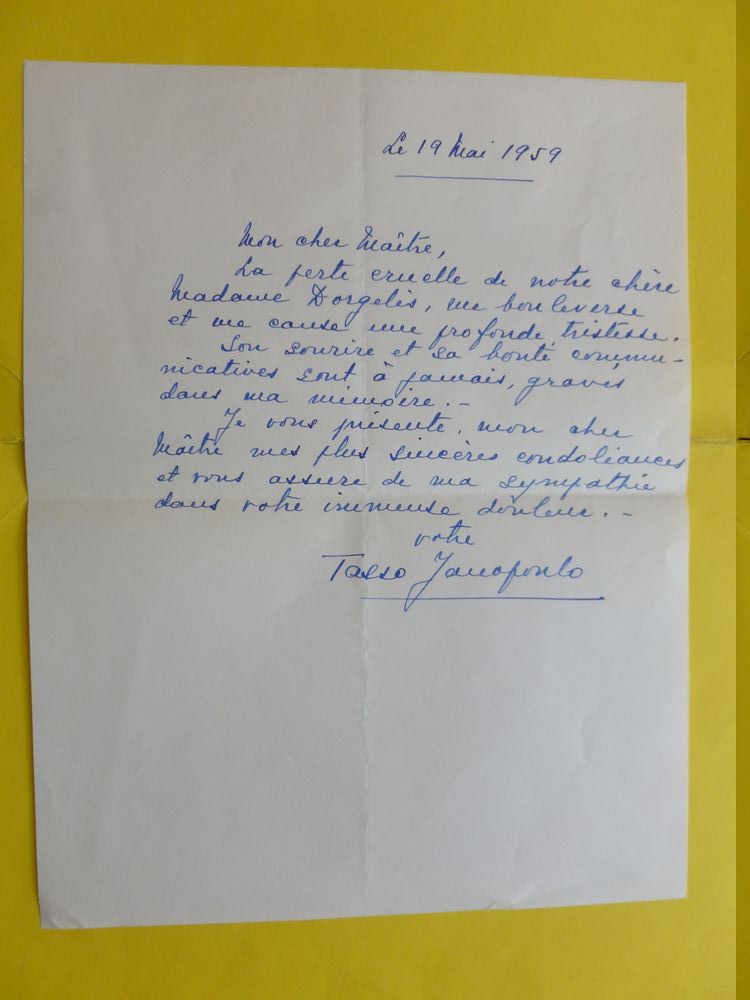 Le 19 Mai 1959
Mon cher Maître,
La perte cruelle de notre chère
Madame Dorgelès, me bouleverse
et me cause une profonde tristesse.
Son sourire et sa bonté commu-
nicatives sont à jamais, gravés
dans ma mémoire. -
Je vous présente, mon cher
Maître mes plus sincères condoliances
et vous assure de ma sympathie
dans votre immense douleur. -
votre
Tasso Janopoulo